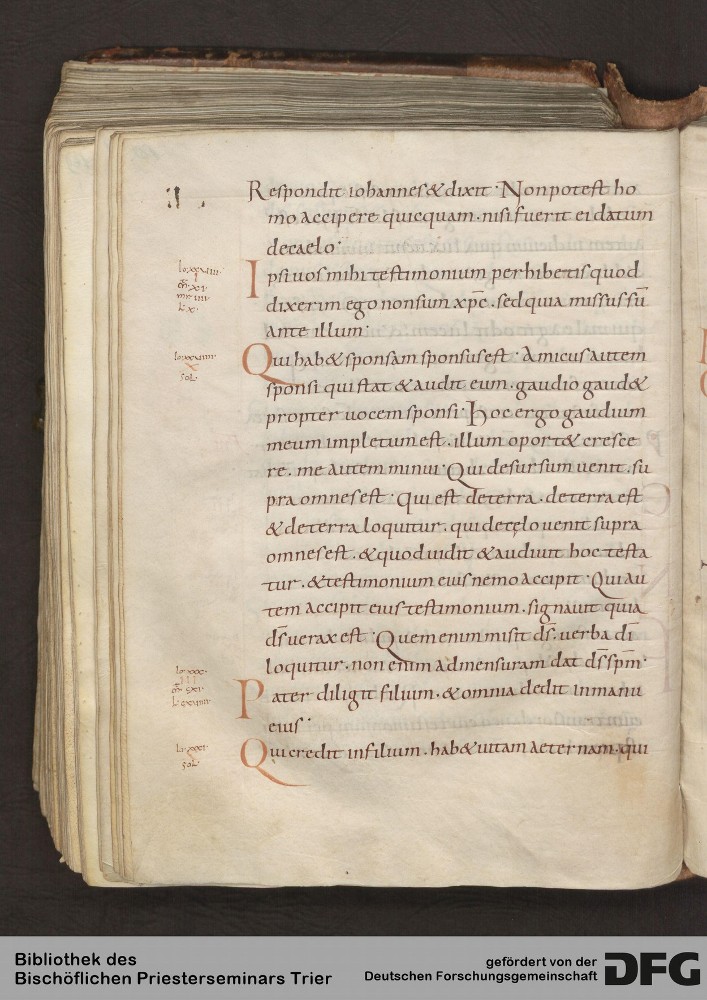 Respondit iohannes & dixit · Non potest ho
mo accipere quicquam · nisi fuerit ei datum
de caelo ·
Ipsi uos mihi testimonium perhibetis quod
dixerim ego non sum xp̄c · sed quia missus sū
ante illum ·
Qui hab& sponsam sponsus est · Amicus autem
sponsi qui stat & audit eum · gaudio gaud&
propter uocem sponsi · Hoc ergo gaudium
meum impletum est · illum oport& cresce
re · me autem minui · Qui desursum uenit · su
pra omnes est · Qui est de terra · de terra est
& de terra loquitur · qui de cęlo uenit supra
omnes est · & quod uidit & audiuit hoc testa
tur · & testimonium eius nemo accipit · Qui au
tem accipit eius testimonium · signauit quia
d̄s uerax est · Quem enim misit d̄s · uerba d̄i
loquitur · non enim ad mensuram dat d̄s sp̄m ·
Pater diligit filium · & omnia dedit in manu
eius ·
Qui credit in filium · hab& uitam aeternam · qui
sol
sol
Bibliothek des
Bischöflichen Priesterseminars Trier
gefördert von der
Deutschen Forschungsgemeinschaft
DFG